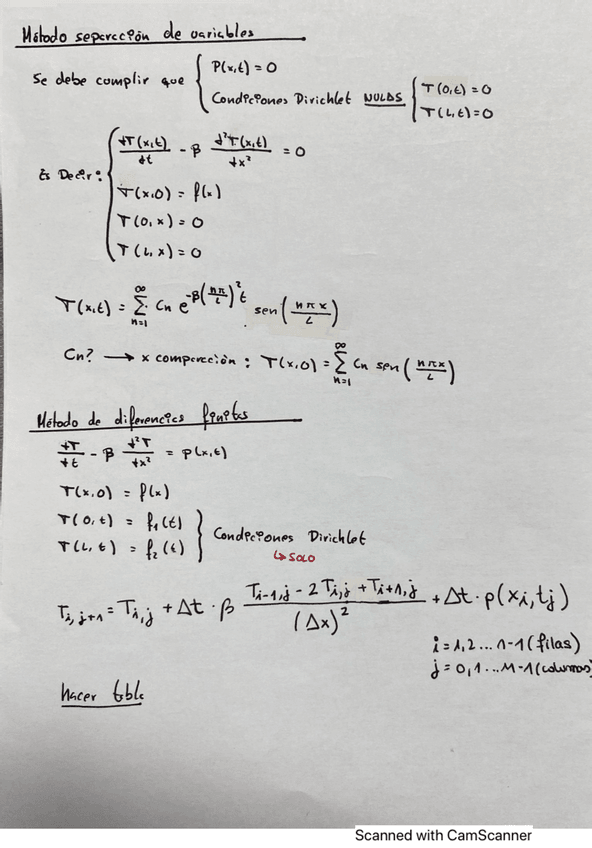 Método separación de variables
Se debe cumplir que { P(x,t) = 0
Condiciones Dirichlet NULAS { T(0,t) = 0
T(L,t) = 0
Es Decir: { dT(x,t)/dt - β d²T(x,t)/dx² = 0
T(x,0) = f(x)
T(0,x) = 0
T(L,x) = 0
T(x,t) = ∑_{n=1}^{∞} Cn e^{-β(nπ/L)² t} . sen(nπx/L)
Cn? → x comparación : T(x,0) = ∑_{n=1}^{∞} Cn sen(nπx/L)
Método de diferencias finitas
dT/dt - β d²T/dx² = p(x,t)
T(x,0) = f(x)
T(0,t) = f₁(t)
T(L,t) = f₂(t) } Condiciones Dirichlet
↳ SOLO
T_{i,j+1} = T_{i,j} + Δt · β (T_{i-1,j} - 2T_{i,j} + T_{i+1,j})/(Δx)² + Δt · p(x_i,t_j)
i = 1,2 ... n-1 (filas)
j = 0,1 ... M-1 (columnas)
hacer tabla
Scanned with CamScanner